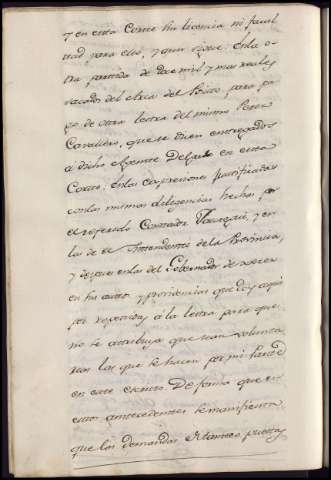 y en esta Corte sin licencia ni facul
tad para ello, y aun sigue: En la o
tra partida de doce mil y mas reales
sacados del Arca del Posito, para pa
go de otra letra del mismo
Cavallero, que se dicen entregados
á dicho Agente Delgado en esta
Corte: Estas expresiones justificadas
con las mismas diligencias hechas por
el referido Contador y en
las de el Intendente de la Provincia,
y despues en las del Governador de
en sus autos y providencias que doy aqui
por repetidas á la letra para que
no se atribuya que sean volunta
rias las que se hacen por mi parte
en este escrito. De forma que en
estos antecedentes se manifiesta
que las demandas puestas